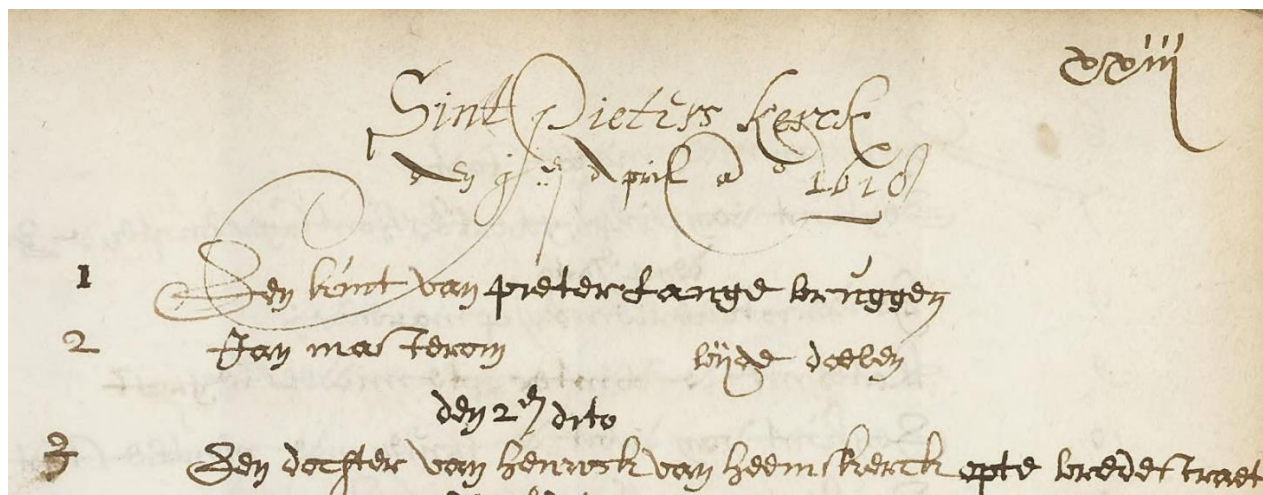 xxiij
Sint Pieters kerck
den j en April a o 1618
1 Een kint van pieter Lange bruggen
2 Jan masterom bÿde doelen
den 2 en dito
3 Een dochter van henrick van heemskerck opte bredestraet